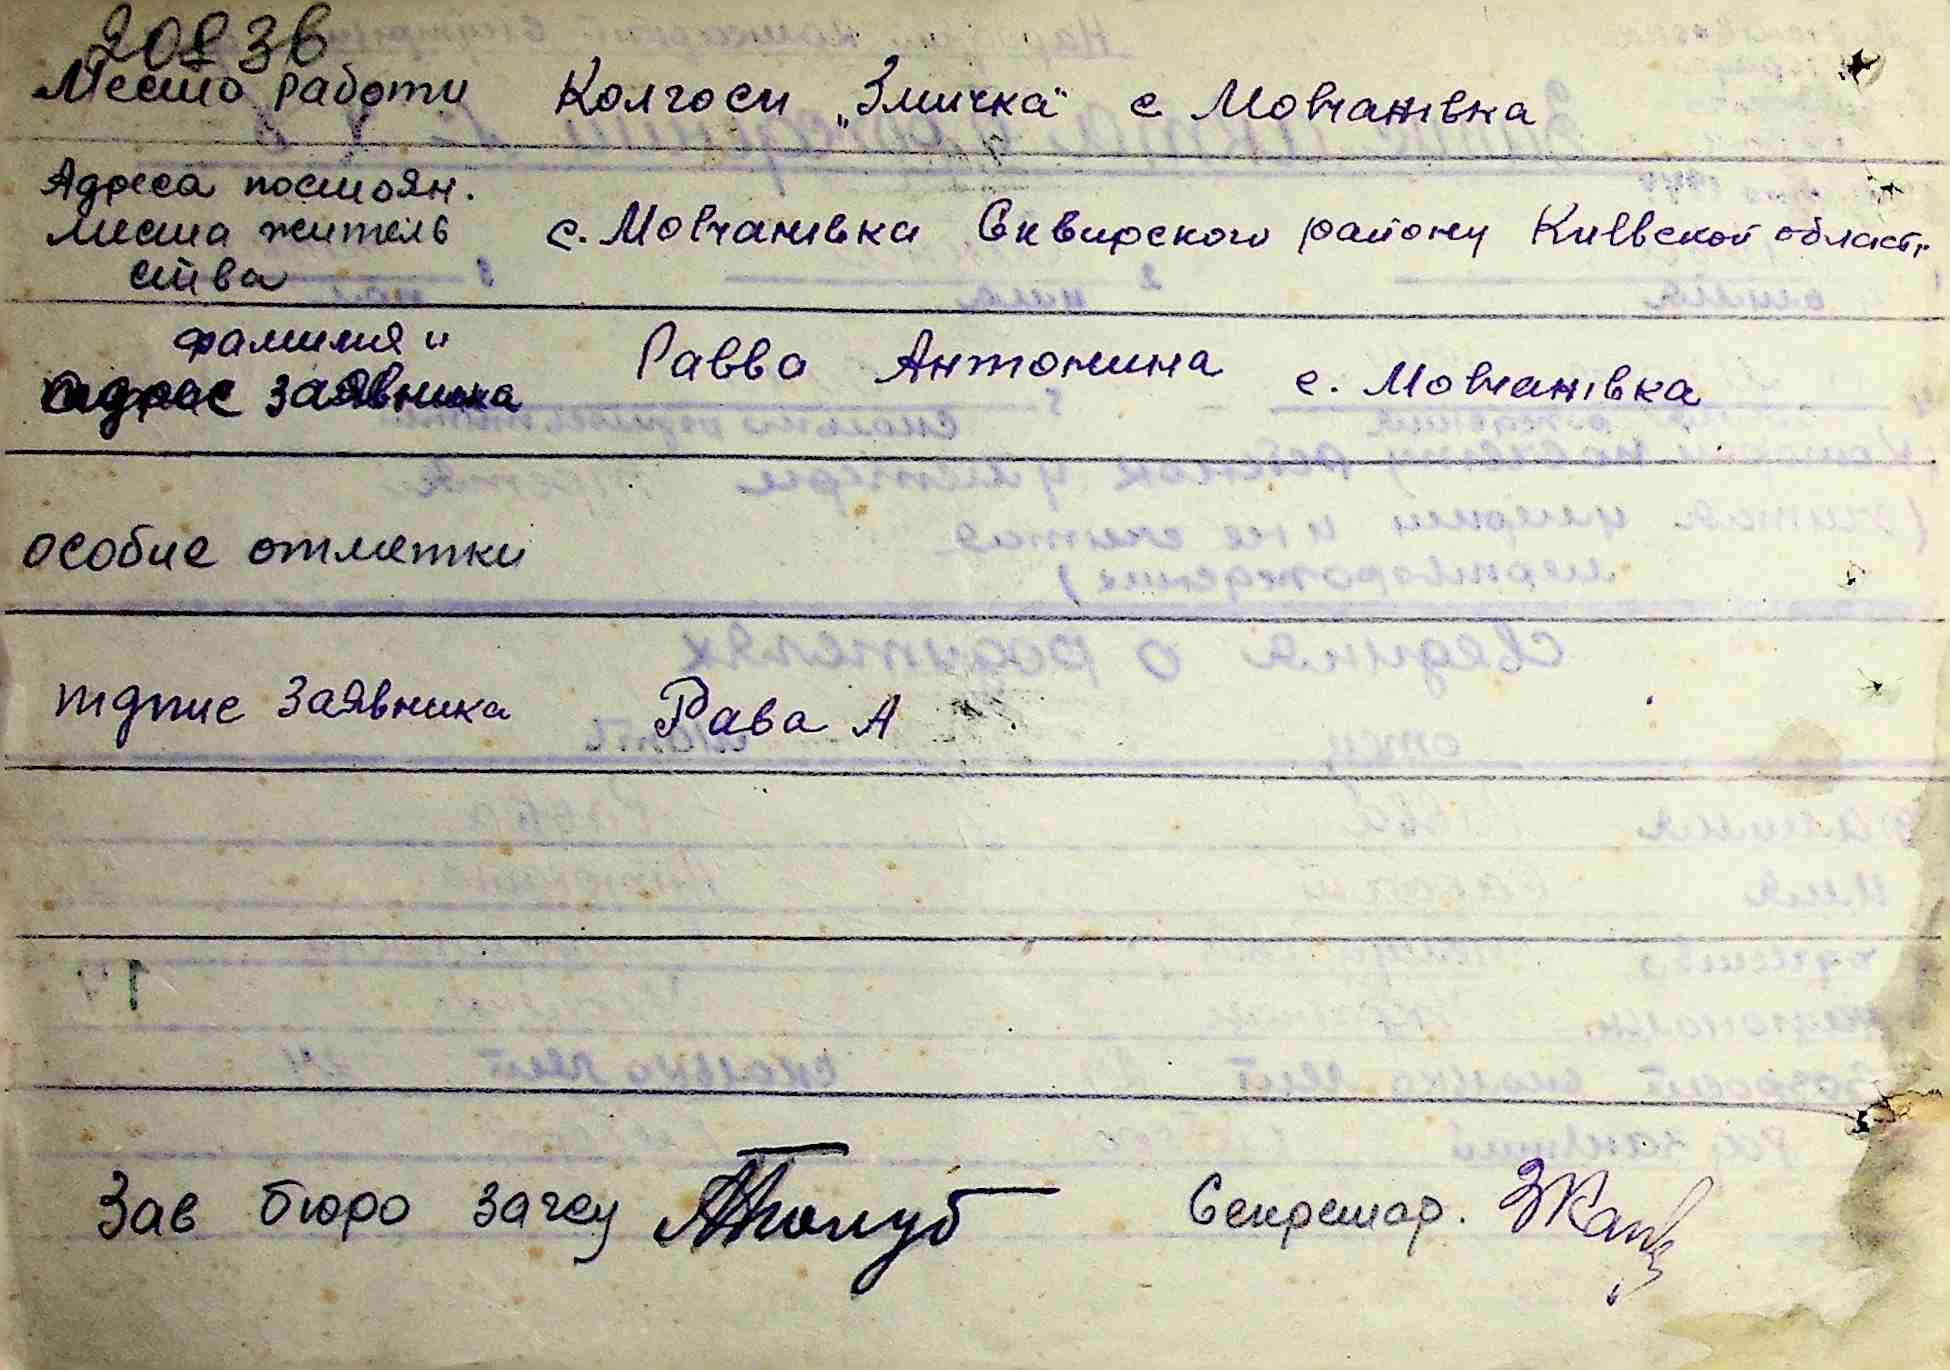 Место работи Колгосп „Змичка" с Мовчанівка
Адреса постоян.
места житель с. Мовчанівка Сквирского району Київской област
ства
фамилия и
адрес заявника Равва Антонина с. Мовчанівка
особие отметки
підпис заявника Рава А
Зав бюро загсу Голуб Секретар.